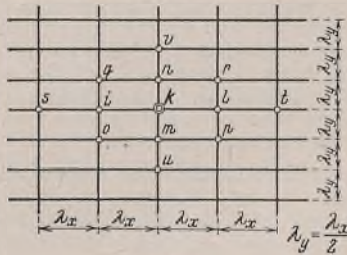 v
q n r
s i k l t
o m p
u
λy
λy
λy
λy
λy
λy
λx λx λx λx
λy = λx/2